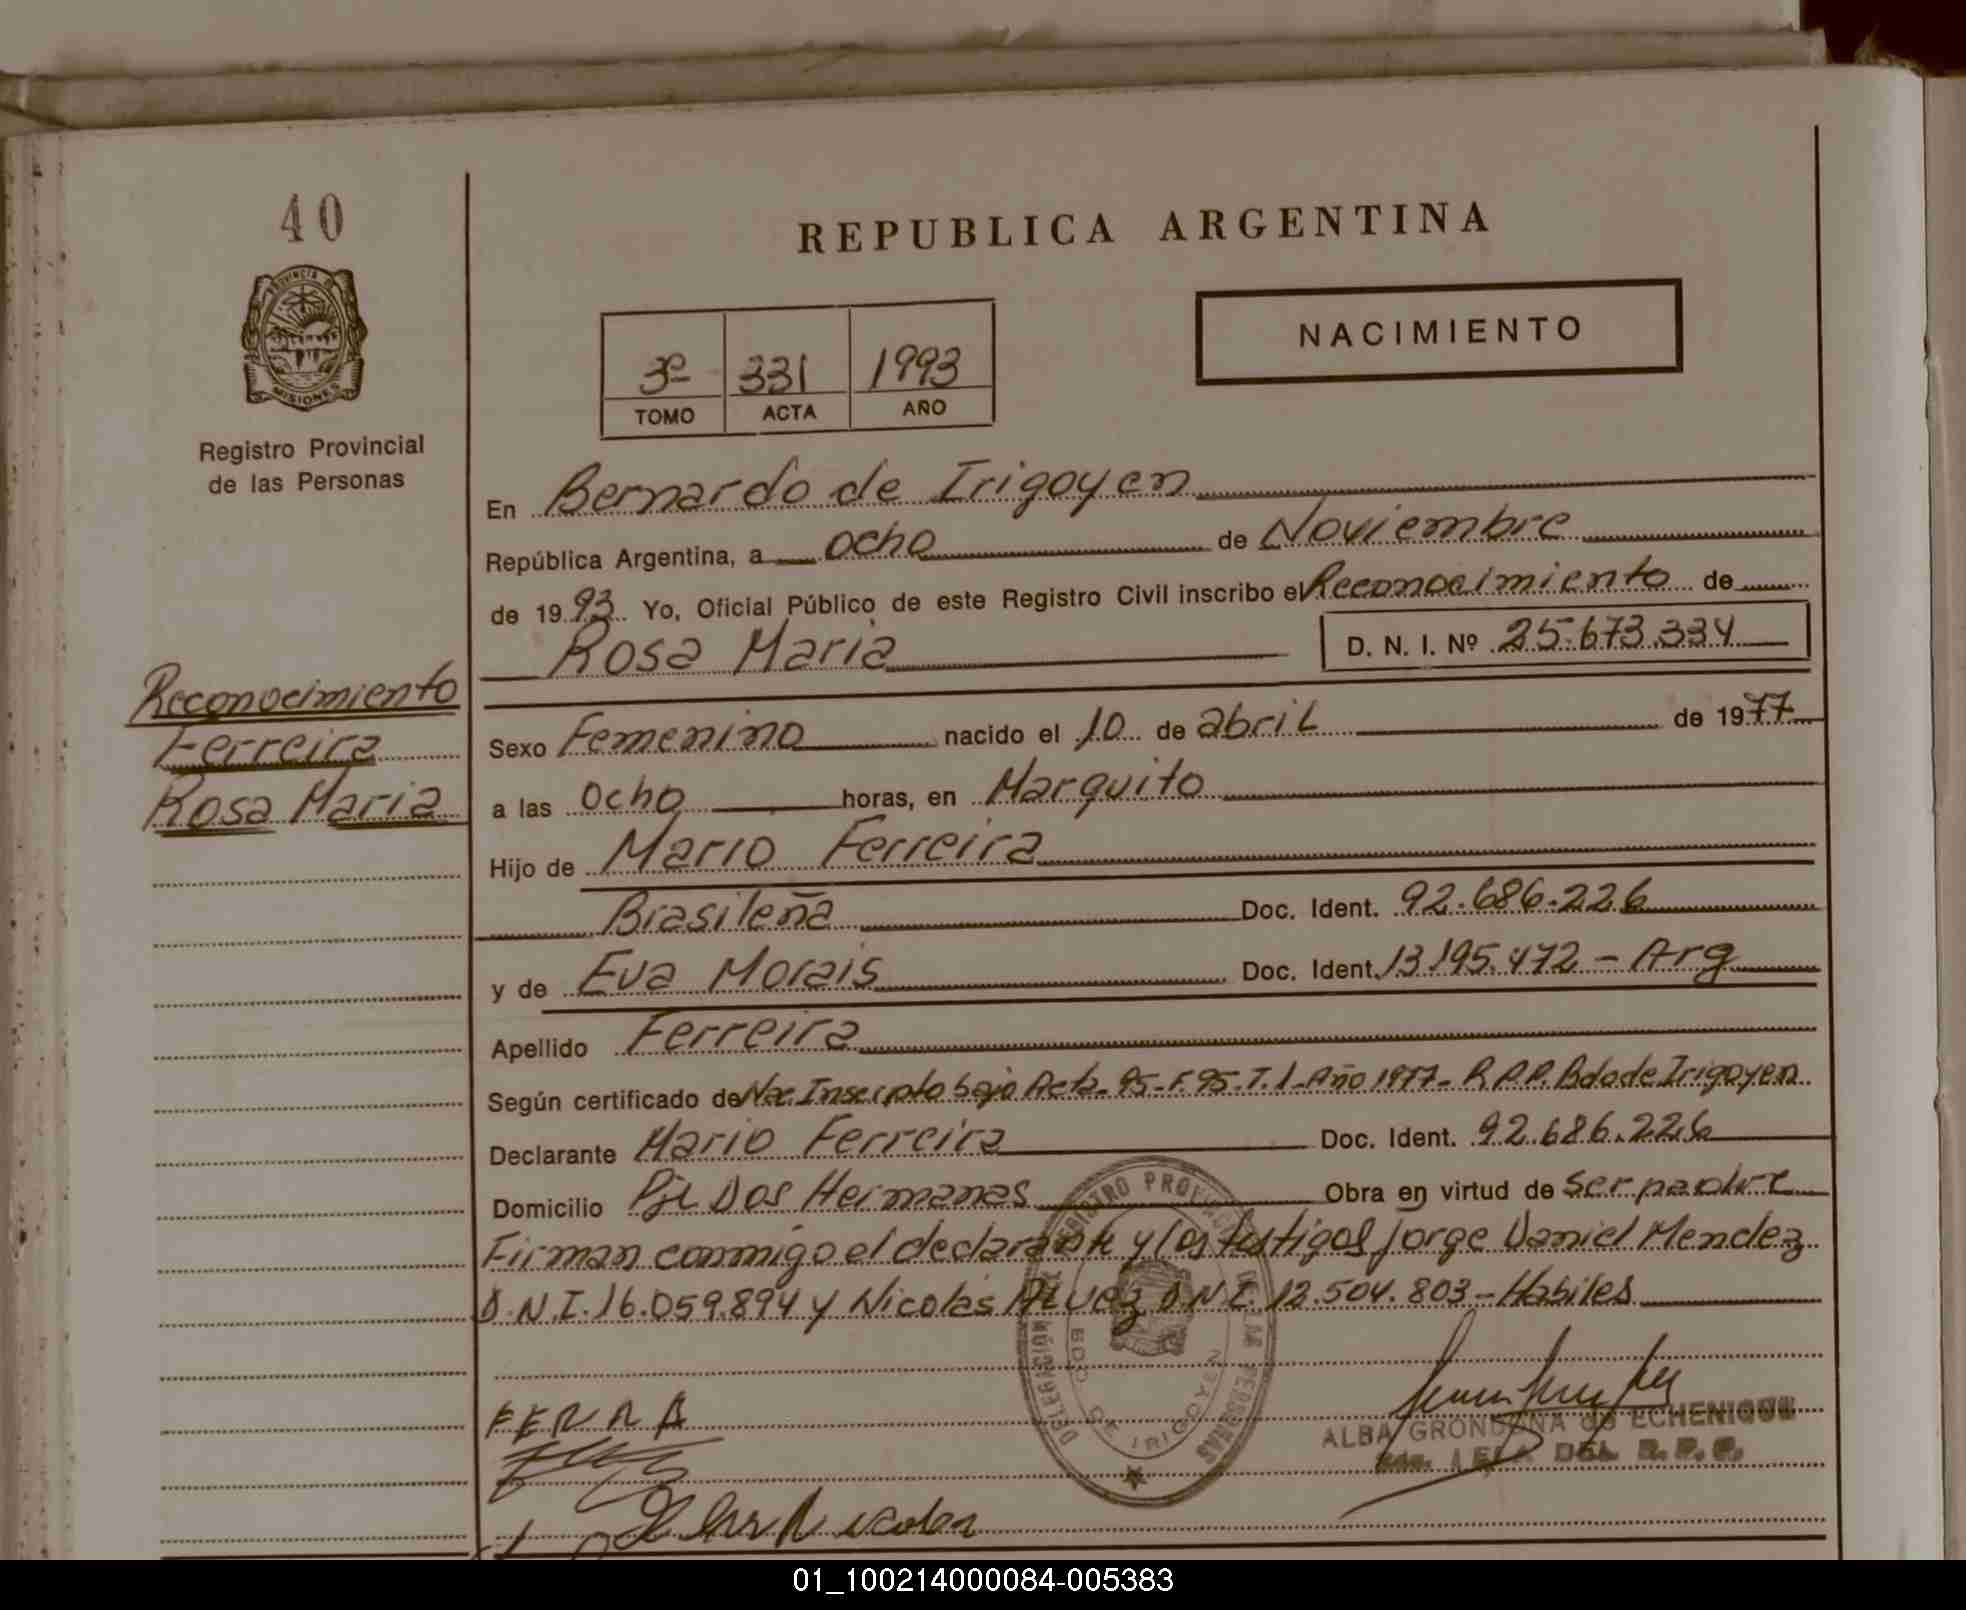 40
PROVINCIA DE
MISIONES
Registro Provincial
de las Personas
Reconocimiento
Ferreira
Rosa Maria
REPUBLICA ARGENTINA
NACIMIENTO
3º 331 1993
TOMO ACTA AÑO
En Bernardo de Irigoyen
República Argentina, a ocho de Noviembre
de 1993 Yo, Oficial Público de este Registro Civil inscribo el Reconocimiento de
Rosa Maria D. N. I. Nº 25.673.334
Sexo Femenino nacido el 10 de abril de 1977
a las Ocho horas, en Marquito
Hijo de Mario Ferreira
Brasileña Doc. Ident. 92.686.226
y de Eva Morais Doc. Ident. 13195.472 - Arg
Apellido Ferreira
Según certificado de Nac. Inscripto bajo Acta - 95 - F. 95 - T. 1 - Año 1977 - R.P.P. Bdo de Irigoyen
Declarante Mario Ferreira Doc. Ident. 92.686.226
Domicilio Pje Dos Hermanas Obra en virtud de ser padre
Firman conmigo el declarante y los testigos Jorge Daniel Mendez
D.N.I. 16.059.894 y Nicolas Alvez D.N.I. 12.504.803 - Habiles
DELEGACION REGISTRO PROVINCIAL DE LAS PERSONAS
BDO DE IRIGOYEN
ALBA GRONDONA de ECHENIQUE
DEL R. P. P.
01_100214000084-005383